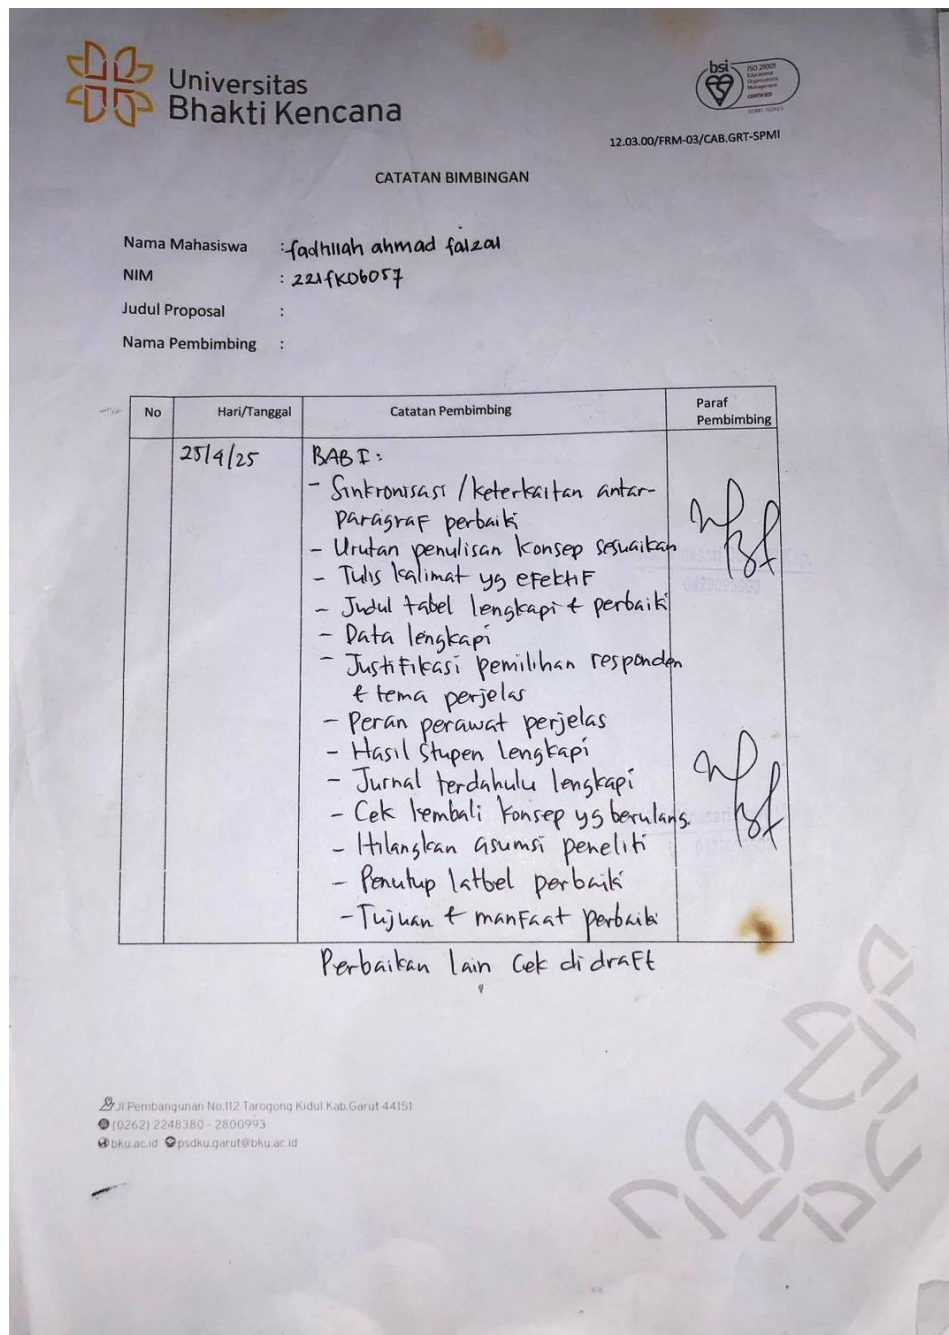 Universitas
Bhakti Kencana
bsi
ISO 21001
Educational
Organizations
Management
CERTIFIED
12.03.00/FRM-03/CAB.GRT-SPMI
CATATAN BIMBINGAN
Nama Mahasiswa : fadhilah ahmad faizal
NIM : 221FK06057
Judul Proposal :
Nama Pembimbing :
No Hari/Tanggal Catatan Pembimbing Paraf Pembimbing
25/4/25 BAB I :
- Sinkronisasi / keterkaitan antar-
paragraf perbaiki
- Urutan penulisan konsep sesuaikan
- Tulis kalimat yg efektif
- Judul tabel lengkapi & perbaiki
- Data lengkapi
- Justifikasi pemilihan responden
& tema perjelas
- Peran perawat perjelas
- Hasil stupen lengkapi
- Jurnal terdahulu lengkapi
- Cek kembali konsep yg berulang
- Hilangkan asumsi peneliti
- Penutup latbel perbaiki
- Tujuan & manfaat perbaiki
Perbaikan lain cek di draft
Jl.Pembangunan No.112 Tarogong Kidul Kab.Garut 44151
(0262) 2248380 - 2800993
bku.ac.id psdku.garut@bku.ac.id